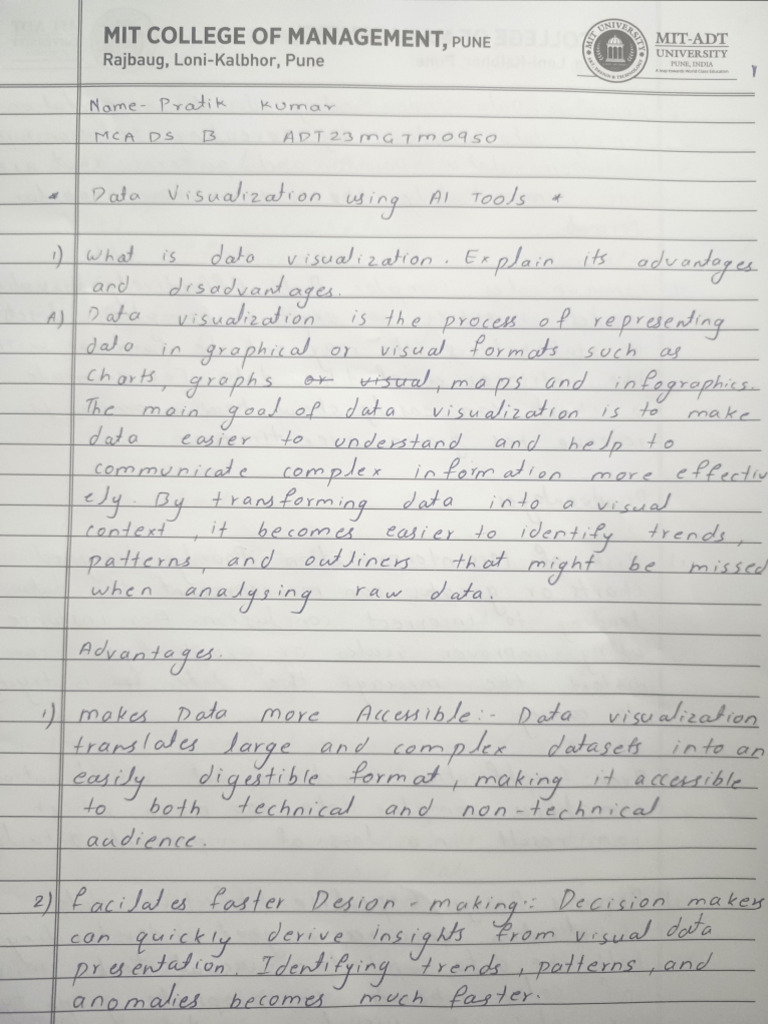 MIT COLLEGE OF MANAGEMENT, PUNE
Rajbaug, Loni-Kalbhor, Pune
MIT-ADT
UNIVERSITY
PUNE, INDIA
A leap towards World Class Education
Name- Pratik Kumar
MCA DS B ADT23MGTM0950
* Data Visualization using AI Tools *
1) What is data visualization. Explain its advantages
and disadvantages.
A) Data visualization is the process of representing
data in graphical or visual formats such as
charts, graphs or visual, maps and infographics.
The main goal of data visualization is to make
data easier to understand and help to
communicate complex information more effectiv
ely. By transforming data into a visual
context, it becomes easier to identify trends,
patterns, and outliners that might be missed
when analysing raw data.
Advantages.
1) makes Data more Accessible:- Data visualization
translates large and complex datasets into an
easily digestible format, making it accessible
to both technical and non-technical
audience.
2) facilates faster Desion-making:- Decision makers
can quickly derive insights from visual data
presentation. Identifying trends, patterns, and
anomalies becomes much faster.